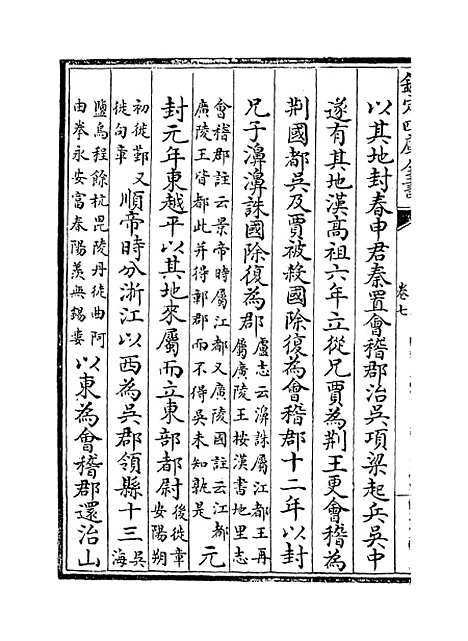 欽定四庫全書
卷七
以其地封春申君秦置會稽郡治吳項梁起兵吳中
遂有其地漢高祖六年立從兄賈為荆王更會稽為
荆國都吳及賈被殺國除復為會稽郡十二年以封
兄子濞濞誅國除復為郡盧志云濞誅屬江都王再屬廣陵王按漢書地里志
會稽郡註云景帝時屬江都又廣陵國註云江都廣陵王皆都此并得鄣郡而不得吳未知孰是元
封元年東越平以其地來屬而立東部都尉後徙章安陽朔
初徙鄞又徙句章順帝時分浙江以西為吳郡領縣十三吳海
鹽烏程餘杭毘陵丹徒曲阿由拳永安富春陽羨無錫婁以東為會稽郡還治山